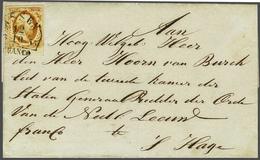 Aan
Hoog Welgeb Heer
den Heer Hoorn van Burck
lid van de tweede kamer der
Staten Generaal Ridder der Orde
Van de Nedl Leeuw
franco te
's Hage
FRANCO